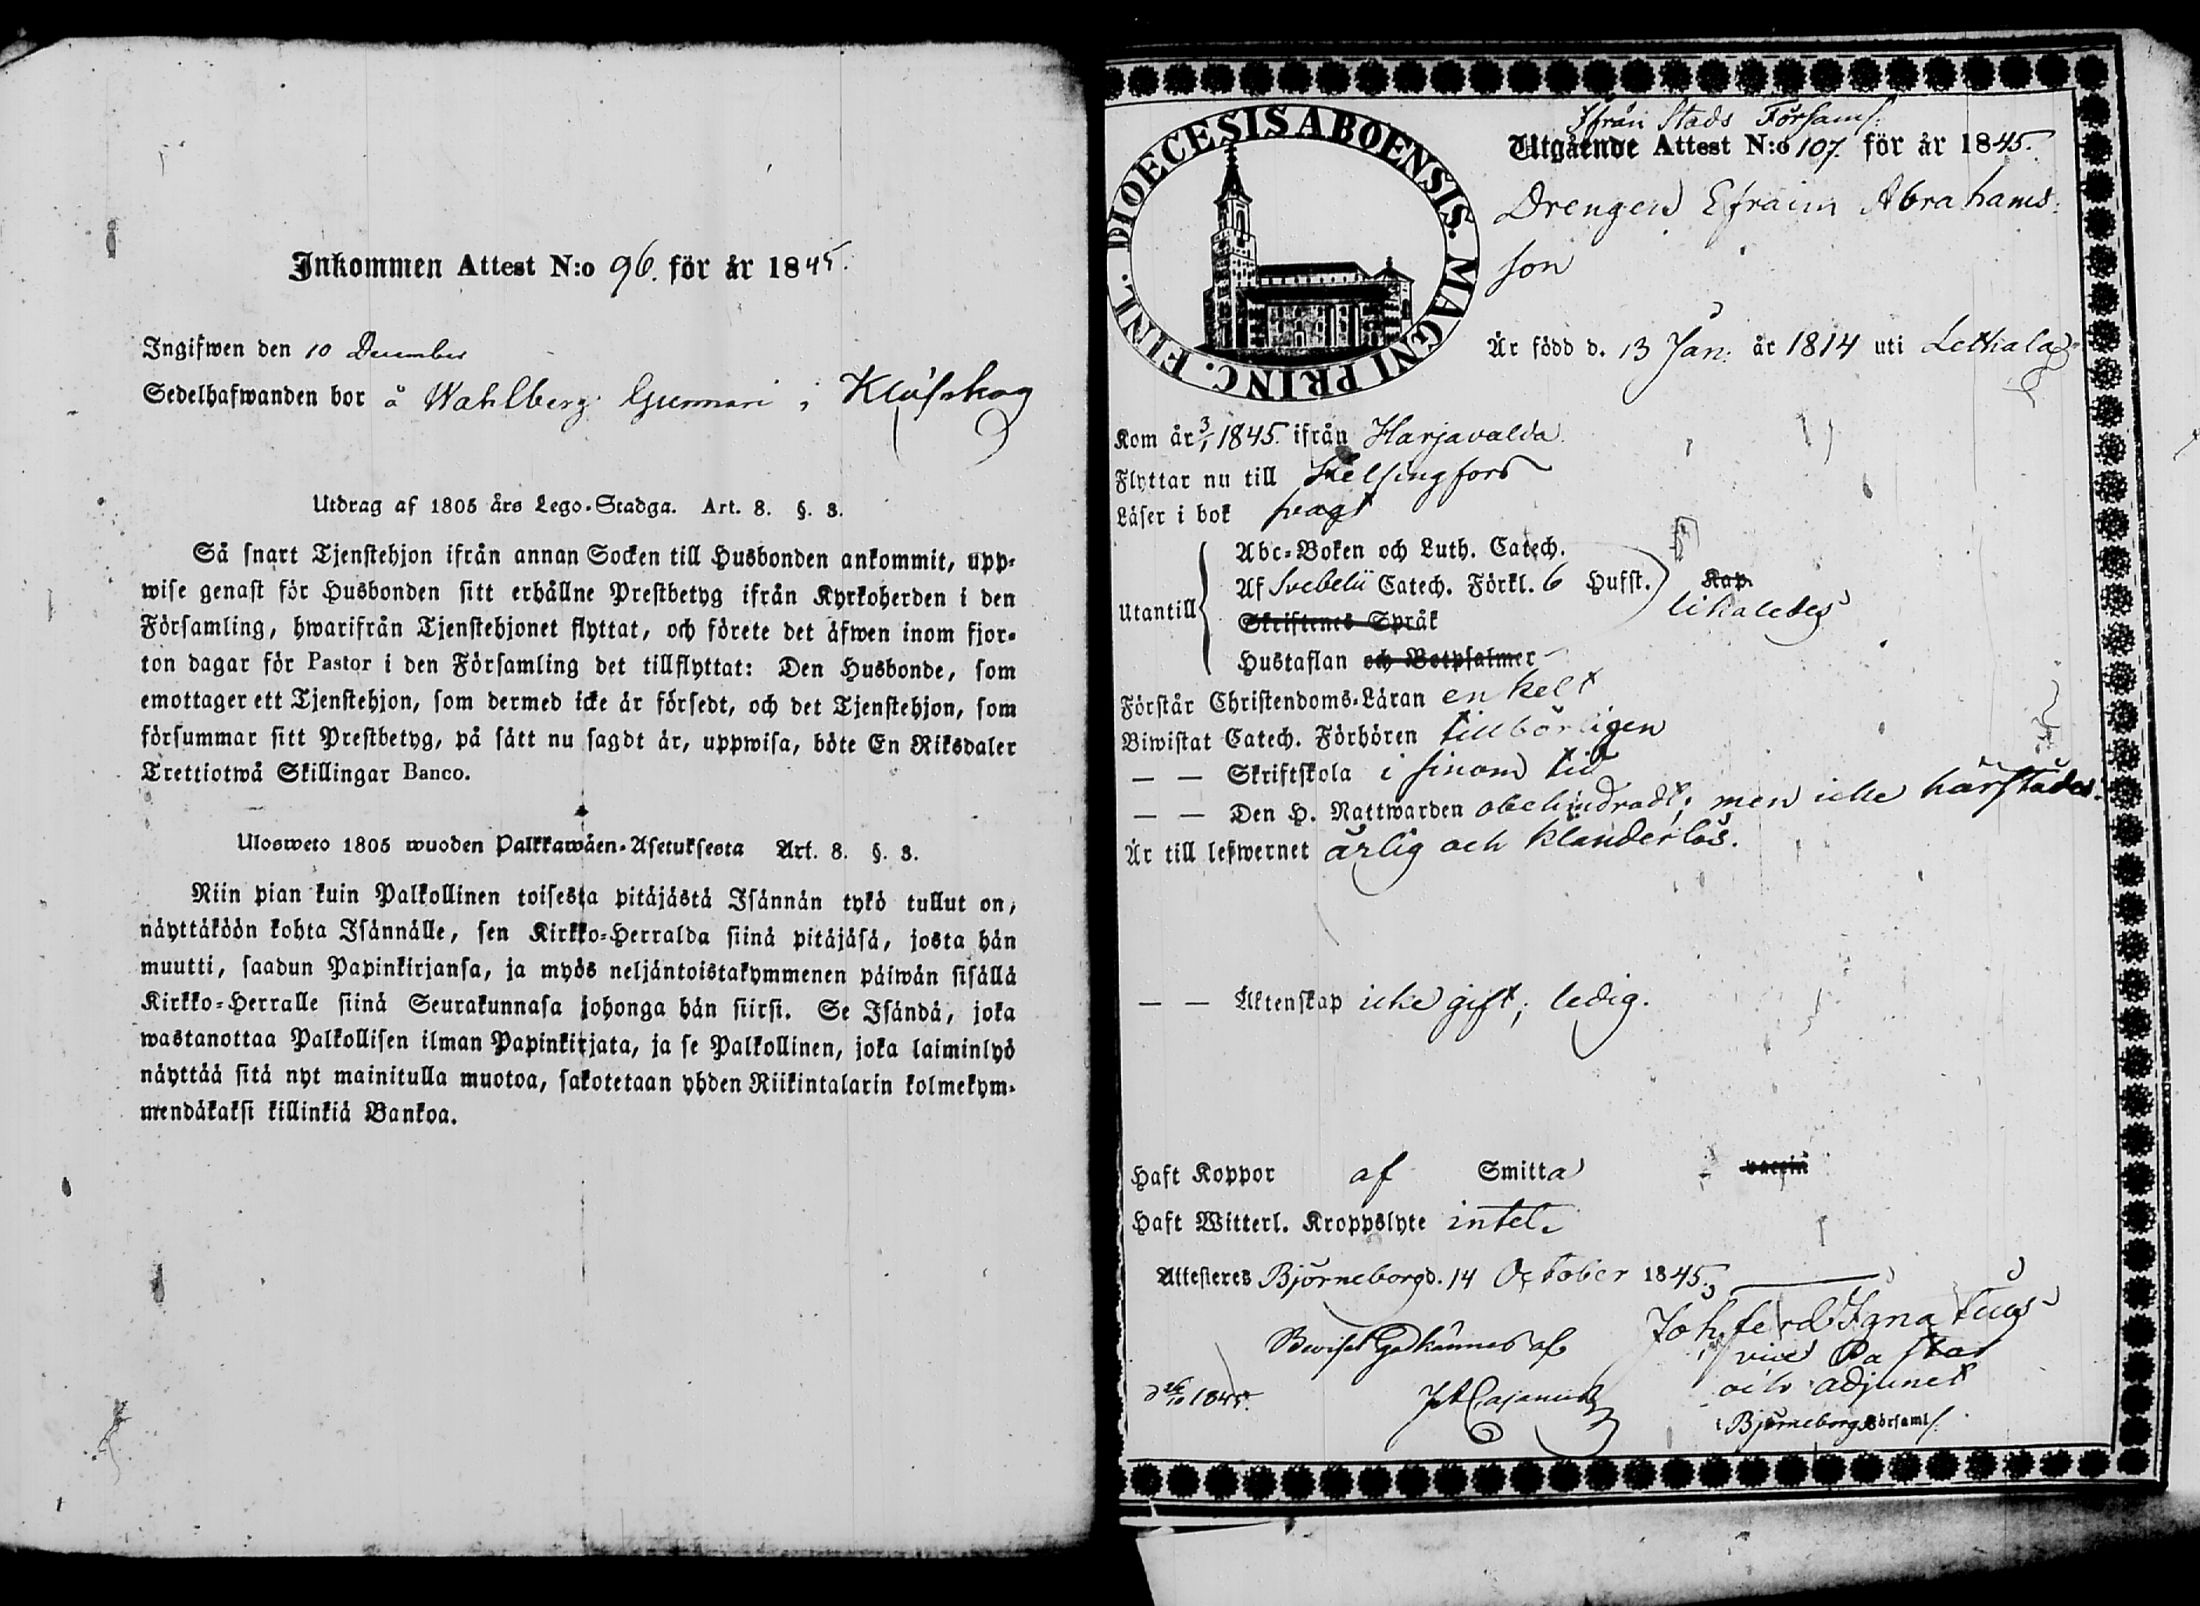 Inkommen Attest N:o 96. för år 1845.
Ingifwen den 10 December
Sedelhafwanden bor å Wahlberg Gumnäri i Klöfskog
Utdrag af 1805 års Lego-Stadga. Art. 8. §. 3.
Så snart Tjenstehjon ifrån annan Socken till Husbonden ankommit, upp-
wise genast för Husbonden sitt erhållne Prestbetyg ifrån Kyrkoherden i den
Församling, hwarifrån Tjenstehjonet flyttat, och förete det äfwen inom fjor-
ton dagar för Pastor i den Församling det tillflyttat: Den Husbonde, som
emottager ett Tjenstehjon, som dermed icke är försedt, och det Tjenstehjon, som
försummar sitt Prestbetyg, på sätt nu sagdt är, uppwisa, böte En Riksdaler
Trettiotwå Skillingar Banco.
Ulosweto 1805 wuoden Palkkawäen-Asetuksesta Art. 8. §. 3.
Niin pian kuin Palkollinen toisesta pitäjästä Isännän tykö tullut on,
näyttäköön kohta Isännälle, sen Kirkko-Herralda siinä pitäjäsä, josta hän
muutti, saadun Papinkirjansa, ja myös neljäntoistakymmenen päiwän sisällä
Kirkko-Herralle siinä Seurakunnasa johonga hän siirsi. Se Isändä, joka
wastanottaa Palkollisen ilman Papinkirjata, ja se Palkollinen, joka laiminlyö
näyttää sitä nyt mainitulla muotoa, sakotetaan yhden Riikintalarin kolmekym-
mendäkaksi killinkiä Bankoa.
DIOECESIS ABOENSIS. MAGNI PRINC. FINL.
Ifrån Stads Församl.
Utgående Attest N:o 107. för år 1845.
Drengen Efraim Abrahams-
son
Är född d. 13 Jan. år 1814 uti Lethala
Kom år 3/1 1845. ifrån Harjavalda
Flyttar nu till Helsingfors
Läser i bok svagt
Abc-Boken och Luth. Catech.
Af Svebelii Catech. Förkl. 6 Hufst. Kap.
Utantill likaledes
Skriftenes Språk
Hustaflan och Botpsalmer
Förstår Christendoms-Läran enkelt
Biwistat Catech. Förhören tillbörligen
— — Skriftskola i sinom tid
— — Den H. Nattwarden obehindradt, men icke härstädes.
Är till lefwernet ärlig och klanderlös.
— — Äktenskap icke gift; ledig.
Haft Koppor af Smitta vaccin
Haft Witterl. Kroppslyte intet.
Attesteres Björneborg d. 14 October 1845.
Joh. Ferd. Ignatius
Beviset Godkännes af
vice Pastor
och adjunct
d 26/10 1845. J A Cajanus
i Björneborgs Församl.